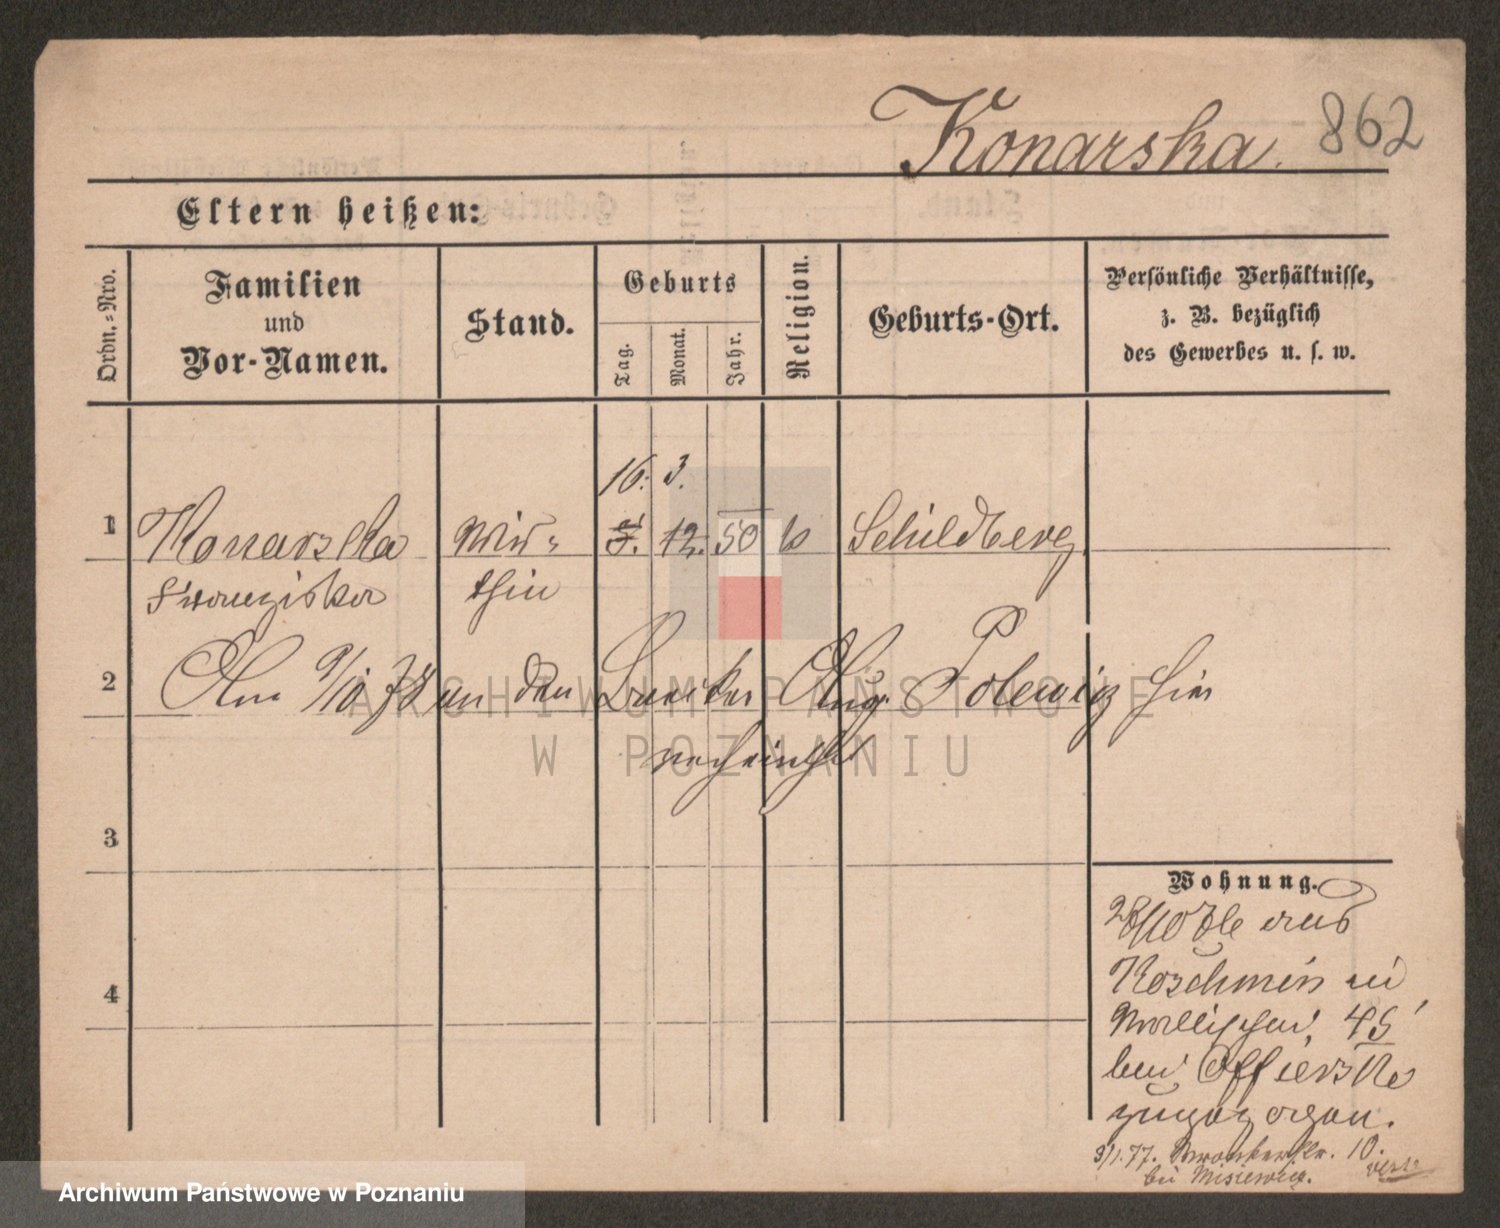 Konarska. 862
Eltern heißen:
Ordn.-Nro.
Familien
und
Vor-Namen.
Stand.
Geburts
Tag.
Monat.
Jahr.
Religion.
Geburts-Ort.
Persönliche Verhältnisse,
z. B. bezüglich
des Gewerbes u. s. w.
16. 3.
1 Konarska Wir- 12. 50 k Schildberg
Franziska thin
2 Am 9/10 78 an den August Polewicz hier
verheirathet
ARCHIWUM PAŃSTWOWE
W POZNANIU
3
4
Wohnung.
28/10 76 aus
Koschmin in
Wallischei 45
bei Offierska
zugezogen.
3/1. 77. Wronkerstr. 10.
bei Misiewicz. verte
Archiwum Państwowe w Poznaniu